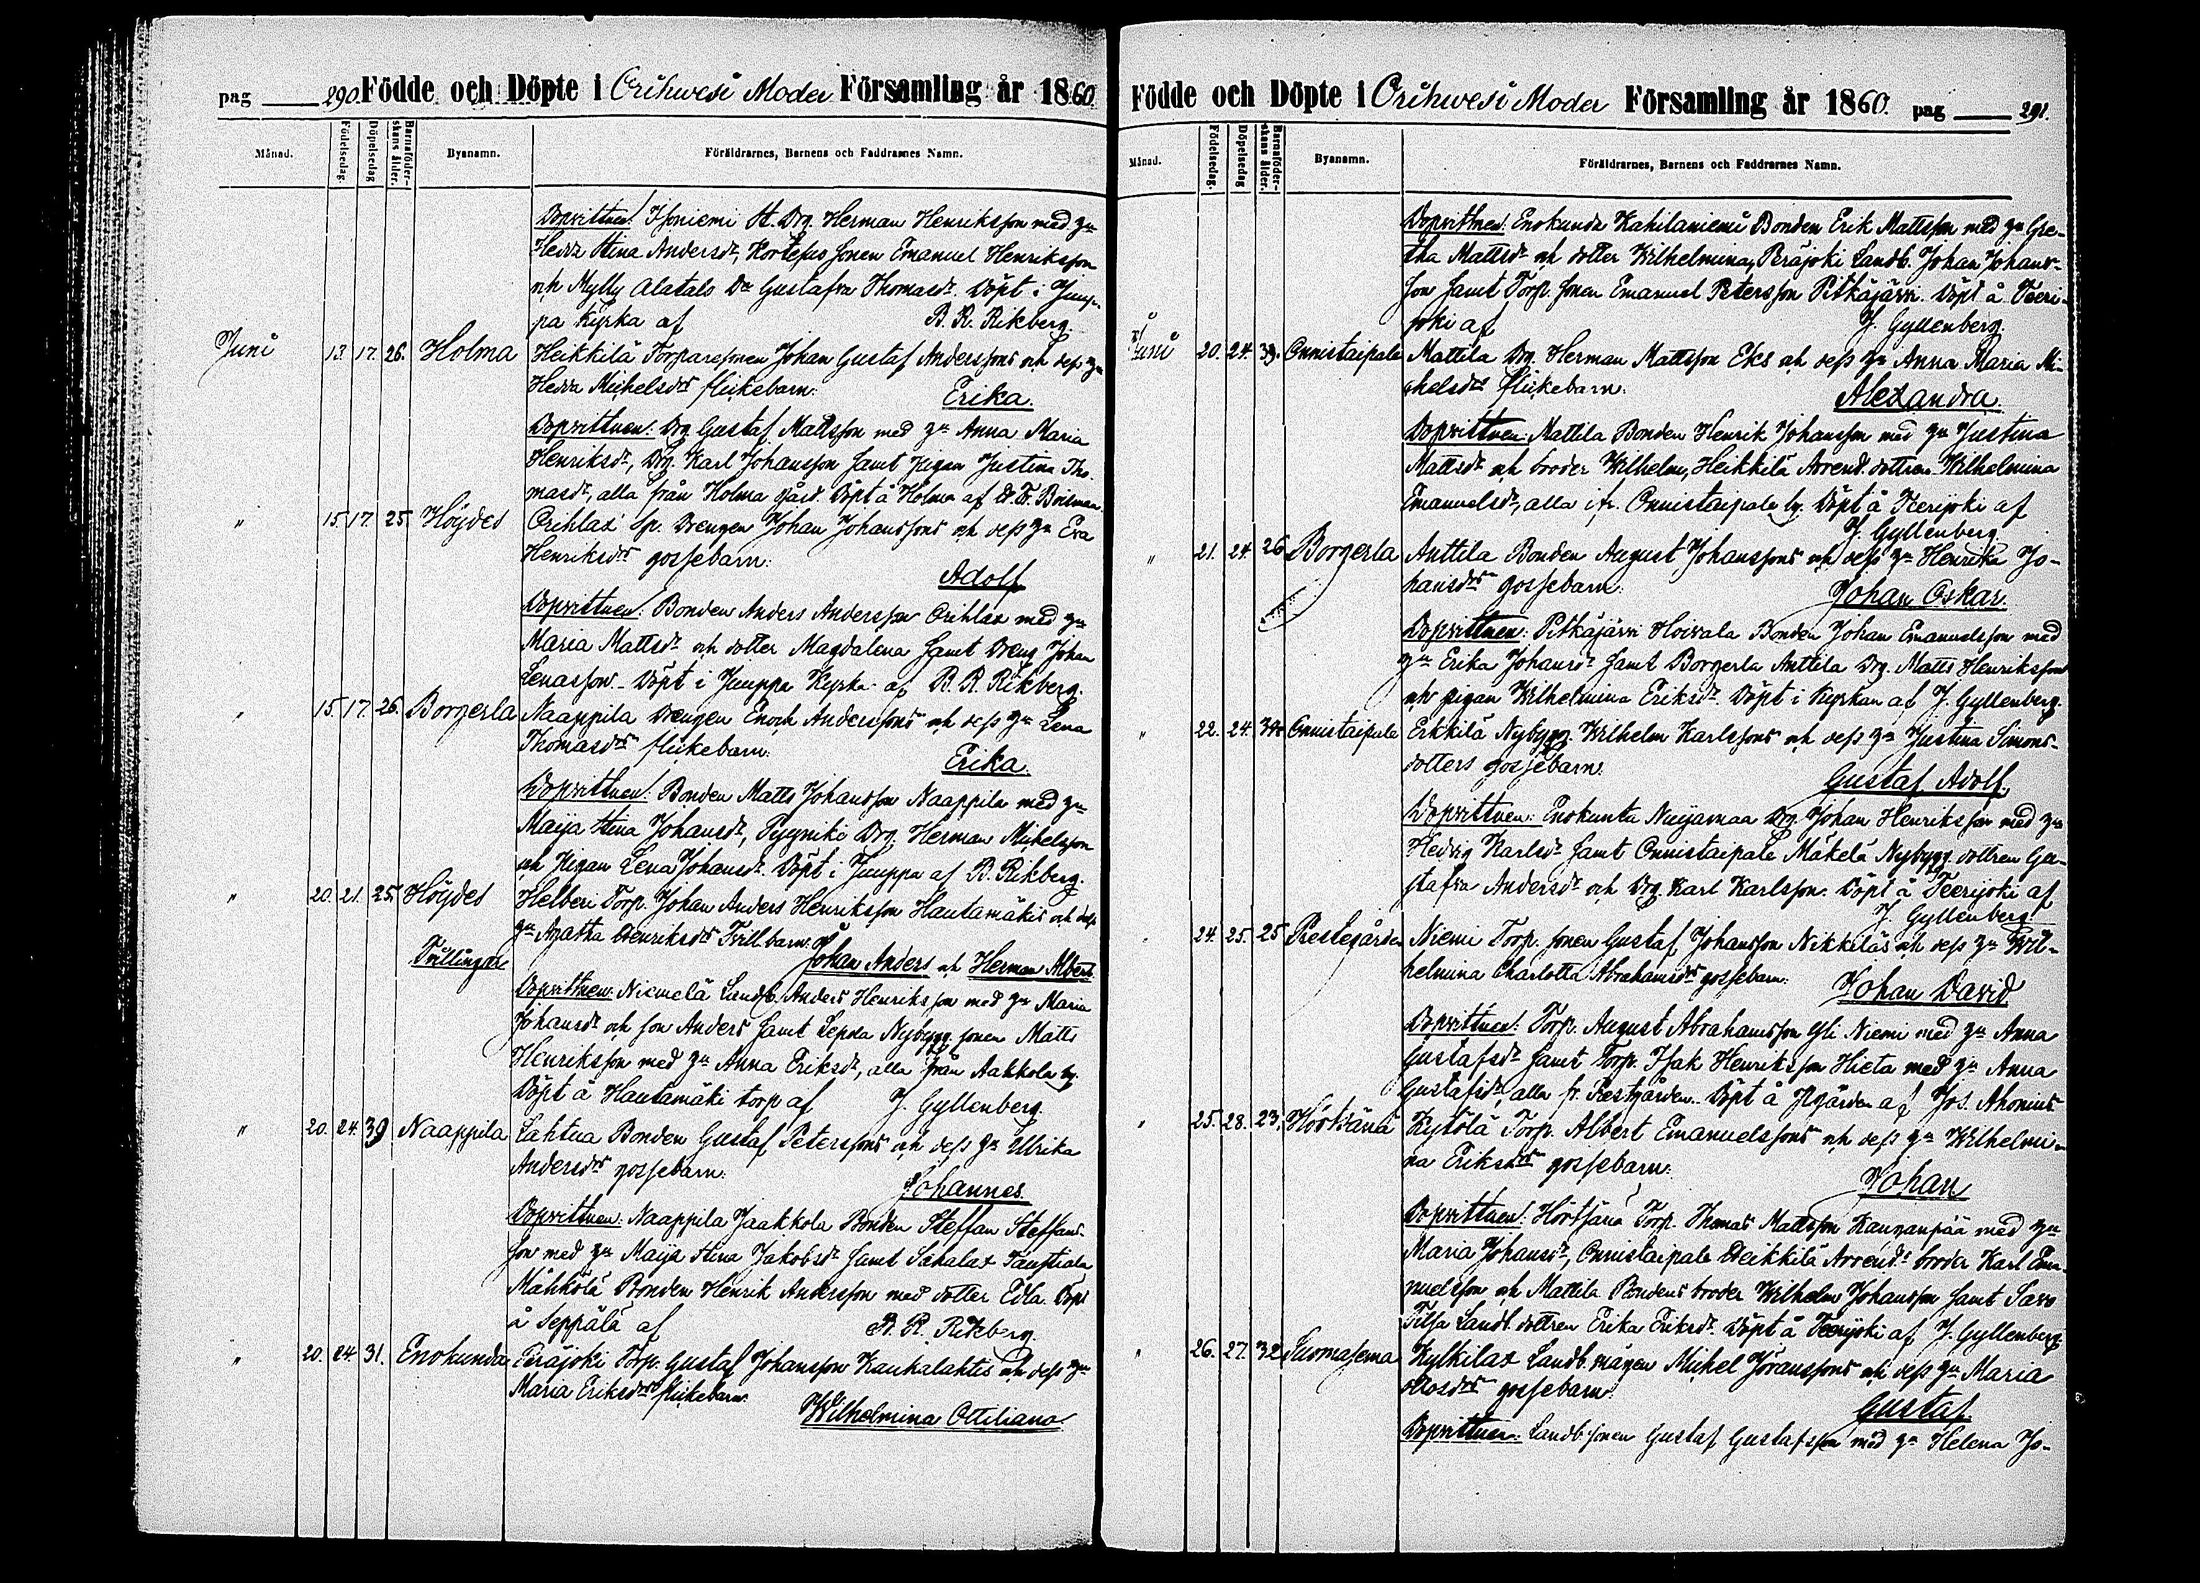 pag 290. Födde och Döpte i Orihwesi Moder Församling år 1860.
Månad. Födelsedag. Döpelsedag Barnaföderskans ålder. Bynamn. Föräldrarnes, Barnens och Faddrarnes Namn.
Dopvittnen: Isoniemi St. Drg. Herman Henriksson med hu
Hedda Stina Andersdr, Kortesus sonen Emanuel Henriksson
och Mylly Alatalo Da Gustafva Thomasdr. Döpt i Juup-
pa Kyrka af B. R. Rikberg.
Juni 13. 17. 26. Holma Heikkilä Torparesonen Johan Gustaf Anderssons och dess hu
Hedda Michelsdrs flickebarn: Erika.
Dopvittnen: Drg Gustaf Mattsson med hu Anna Maria
Henriksdr, Drg. Karl Johansson samt pigan Justina Tho-
masdr, alla från Holma gård. Döpt å Holma af Boisman.
" 15. 17. 25. Höydes Orihlax Sp. Drengen Johan Johanssons och dess hu Eva
Henriksdrs gossebarn: Adolf
Dopvittnen: Bonden Anders Andersson Orihlax med hu
Maria Mattsdr och dotter Magdalena samt Dreng Johan
Lenasson. Döpt i Juuppa Kyrka af B. R. Rikberg.
" 15. 17. 26. Borgerla Naappila Drengen Enoch Anderssons och dess hu Lena
Thomasdrs flickebarn: Erika.
Dopvittnen: Bonden Matts Johansson Naappila med hu
Maija Stina Johansdr, Pyynikö Drg. Herman Michelsson
och Pigan Lena Johansdr. Döpt i Juuppa af B. Rikberg.
" 20. 21. 25. Höydes Helberi Torp. Johan Anders Henriksson Hautamäkis och dess
hu Agatha Henriksdrs Tvill.barn:
Tvillingar Johan Anders och Herman Albert.
Dopvittnen: Niemelä Landb. Anders Henriksson med hu Maria
Johansdr och son Anders samt Lepola Nybygg. sonen Matts
Henriksson med hu Anna Eriksdr, alla från Aakkola by.
Döpt å Hautamäki torp af J. Gyllenberg.
" 20. 24. 39 Naappila Lahtua Bonden Gustaf Peterssons och dess hu Ulrika
Andersdrs gossebarn: Johannes.
Dopvittnen: Naappila Jaakkola Bonden Steffan Steffans-
son med hu Maija Stina Jakobsdr samt Sahalax Taustiala
Mähkölä Bonden Henrik Andersson med dotter Edla. Döpt
å Seppälä af B. R. Rikberg.
" 20. 24. 31. Enokunda Peräjoki Torp. Gustaf Johansson Kauhalahtis och dess hu
Maria Eriksdrs flickebarn:
Wilhelmina Ottiliana.
Födde och Döpte i Orihwesi Moder Församling år 1860. pag 291.
Månad. Födelsedag. Döpelsedag Barnaföderskans ålder. Bynamn. Föräldrarnes, Barnens och Faddrarnes Namn.
Dopvittnen: Enokunda Kahilaniemi Bonden Erik Mattsson med hu Gre-
tha Mattsdr och dotter Wilhelmina, Peräjoki Landb. Johan Johans-
son samt Torp. sonen Emanuel Petersson Pitkäjärvi. Döpt å Teeri-
joki af J. Gyllenberg.
Juni 20. 24. 39. Onnistaipale Mattila Drg. Herman Mattsson Eks och dess hu Anna Maria Mi-
chelsdrs flickebarn: Alexandra.
Dopvittnen: Mattila Bonden Henrik Johansson med hu Justina
Mattsdr och broder Wilhelm, Heikkilä Arrend. dottren Wilhelmina
Emanuelsdr, alla fr. Onnistaipale by. Döpt å Teerijoki af
J. Gyllenberg.
" 21. 24. 26 Borgerla Anttila Bonden August Johanssons och dess hu Henrika Jo-
hansdrs gossebarn: Johan Oskar.
Dopvittnen: Pitkäjärvi Hoivala Bonden Johan Emanuelsson med
hu Erika Johansdr samt Borgerla Anttila Drg. Matts Henriksson
och pigan Wilhelmina Eriksdr. Döpt i Kyrkan af J. Gyllenberg.
" 22. 24. Onnistaipale Erkkilä Nybygg. Wilhelm Karlssons och dess hu Justina Simons-
dotters gossebarn: Gustaf Adolf.
Dopvittnen: Enokunta Nuijamaa Drg. Johan Henriksson med hu
Hedvig Karlsdr samt Onnistaipale Mäkelä Nybygg. dottren Gu-
stafva Andersdr och Drg. Karl Karlsson. Döpt å Teerijoki af
J. Gyllenberg.
24. 25. 25 Prestegården Niemi Torp. sonen Gustaf Johansson Nikkiläs och dess hu Wil-
helmina Charlotta Abrahamsdrs gossebarn: Johan David
Dopvittnen: Torp. August Abrahamsson Yli Niemi med hu Anna
Gustafsdr samt Torp. Isak Henriksson Hieta med hu Anna
Gustafsdr, alla fr. Prestgården. Döpt å Pgården af Jos. Ahonius
" 25. 28. 23. Hörtsänä Kytölä Torp. Albert Emanuelssons och dess hu Wilhelmi-
na Eriksdrs gossebarn: Johan
Dopvittnen: Hörtsänä Torp. Thomas Mattsson Kanganpää med hu
Maria Johansdr, Onnistaipale Heikkilä Arrend:s broder Karl Ema-
nuelsson och Mattila Bondens broder Wilhelm Johansson samt Savo
Tilsa Landb. dottren Erika Eriksdr. Döpt å Teerijoki af J. Gyllenberg.
" 26. 27. 32 Suomasema Kylkilax Landb. mågen Michel Jöranssons och dess hu Maria
Ottosdrs gossebarn: Gustaf.
Dopvittnen: Landb. sonen Gustaf Gustafsson med hu Helena Jo-